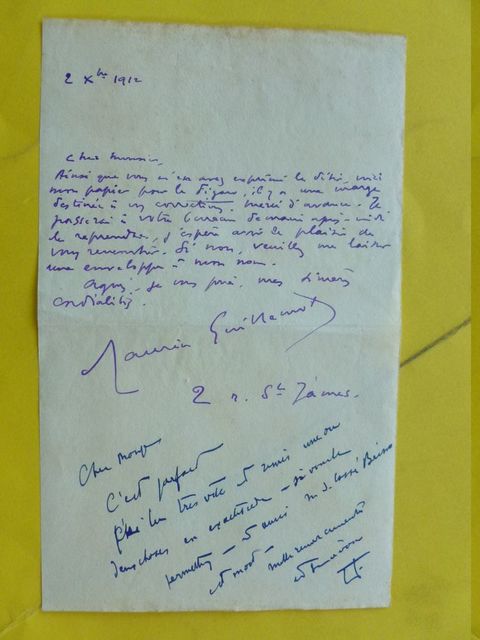 2 Xbre 1912
Cher monsieur,
Ainsi que vous m'en avez exprimé le désir, voici
mon papier pour le Figaro, il y a une marge
destinée à vos corrections, merci d'avance. Je
passerai à votre bureau demain après-midi
le reprendre, j'espère avoir le plaisir de
vous rencontrer. Si non, veuillez me laisser
une enveloppe à mon nom.
Agréez, je vous prie, mes sincères
cordialités.
Maurice Guillemot
2 r. St James.
Cher
C'est parfait
J'ai lu très vite et remis une ou
deux choses en exactitude — si vous le
permettez — et aussi M. de Cossé Brissac
et mort — mille remerciements